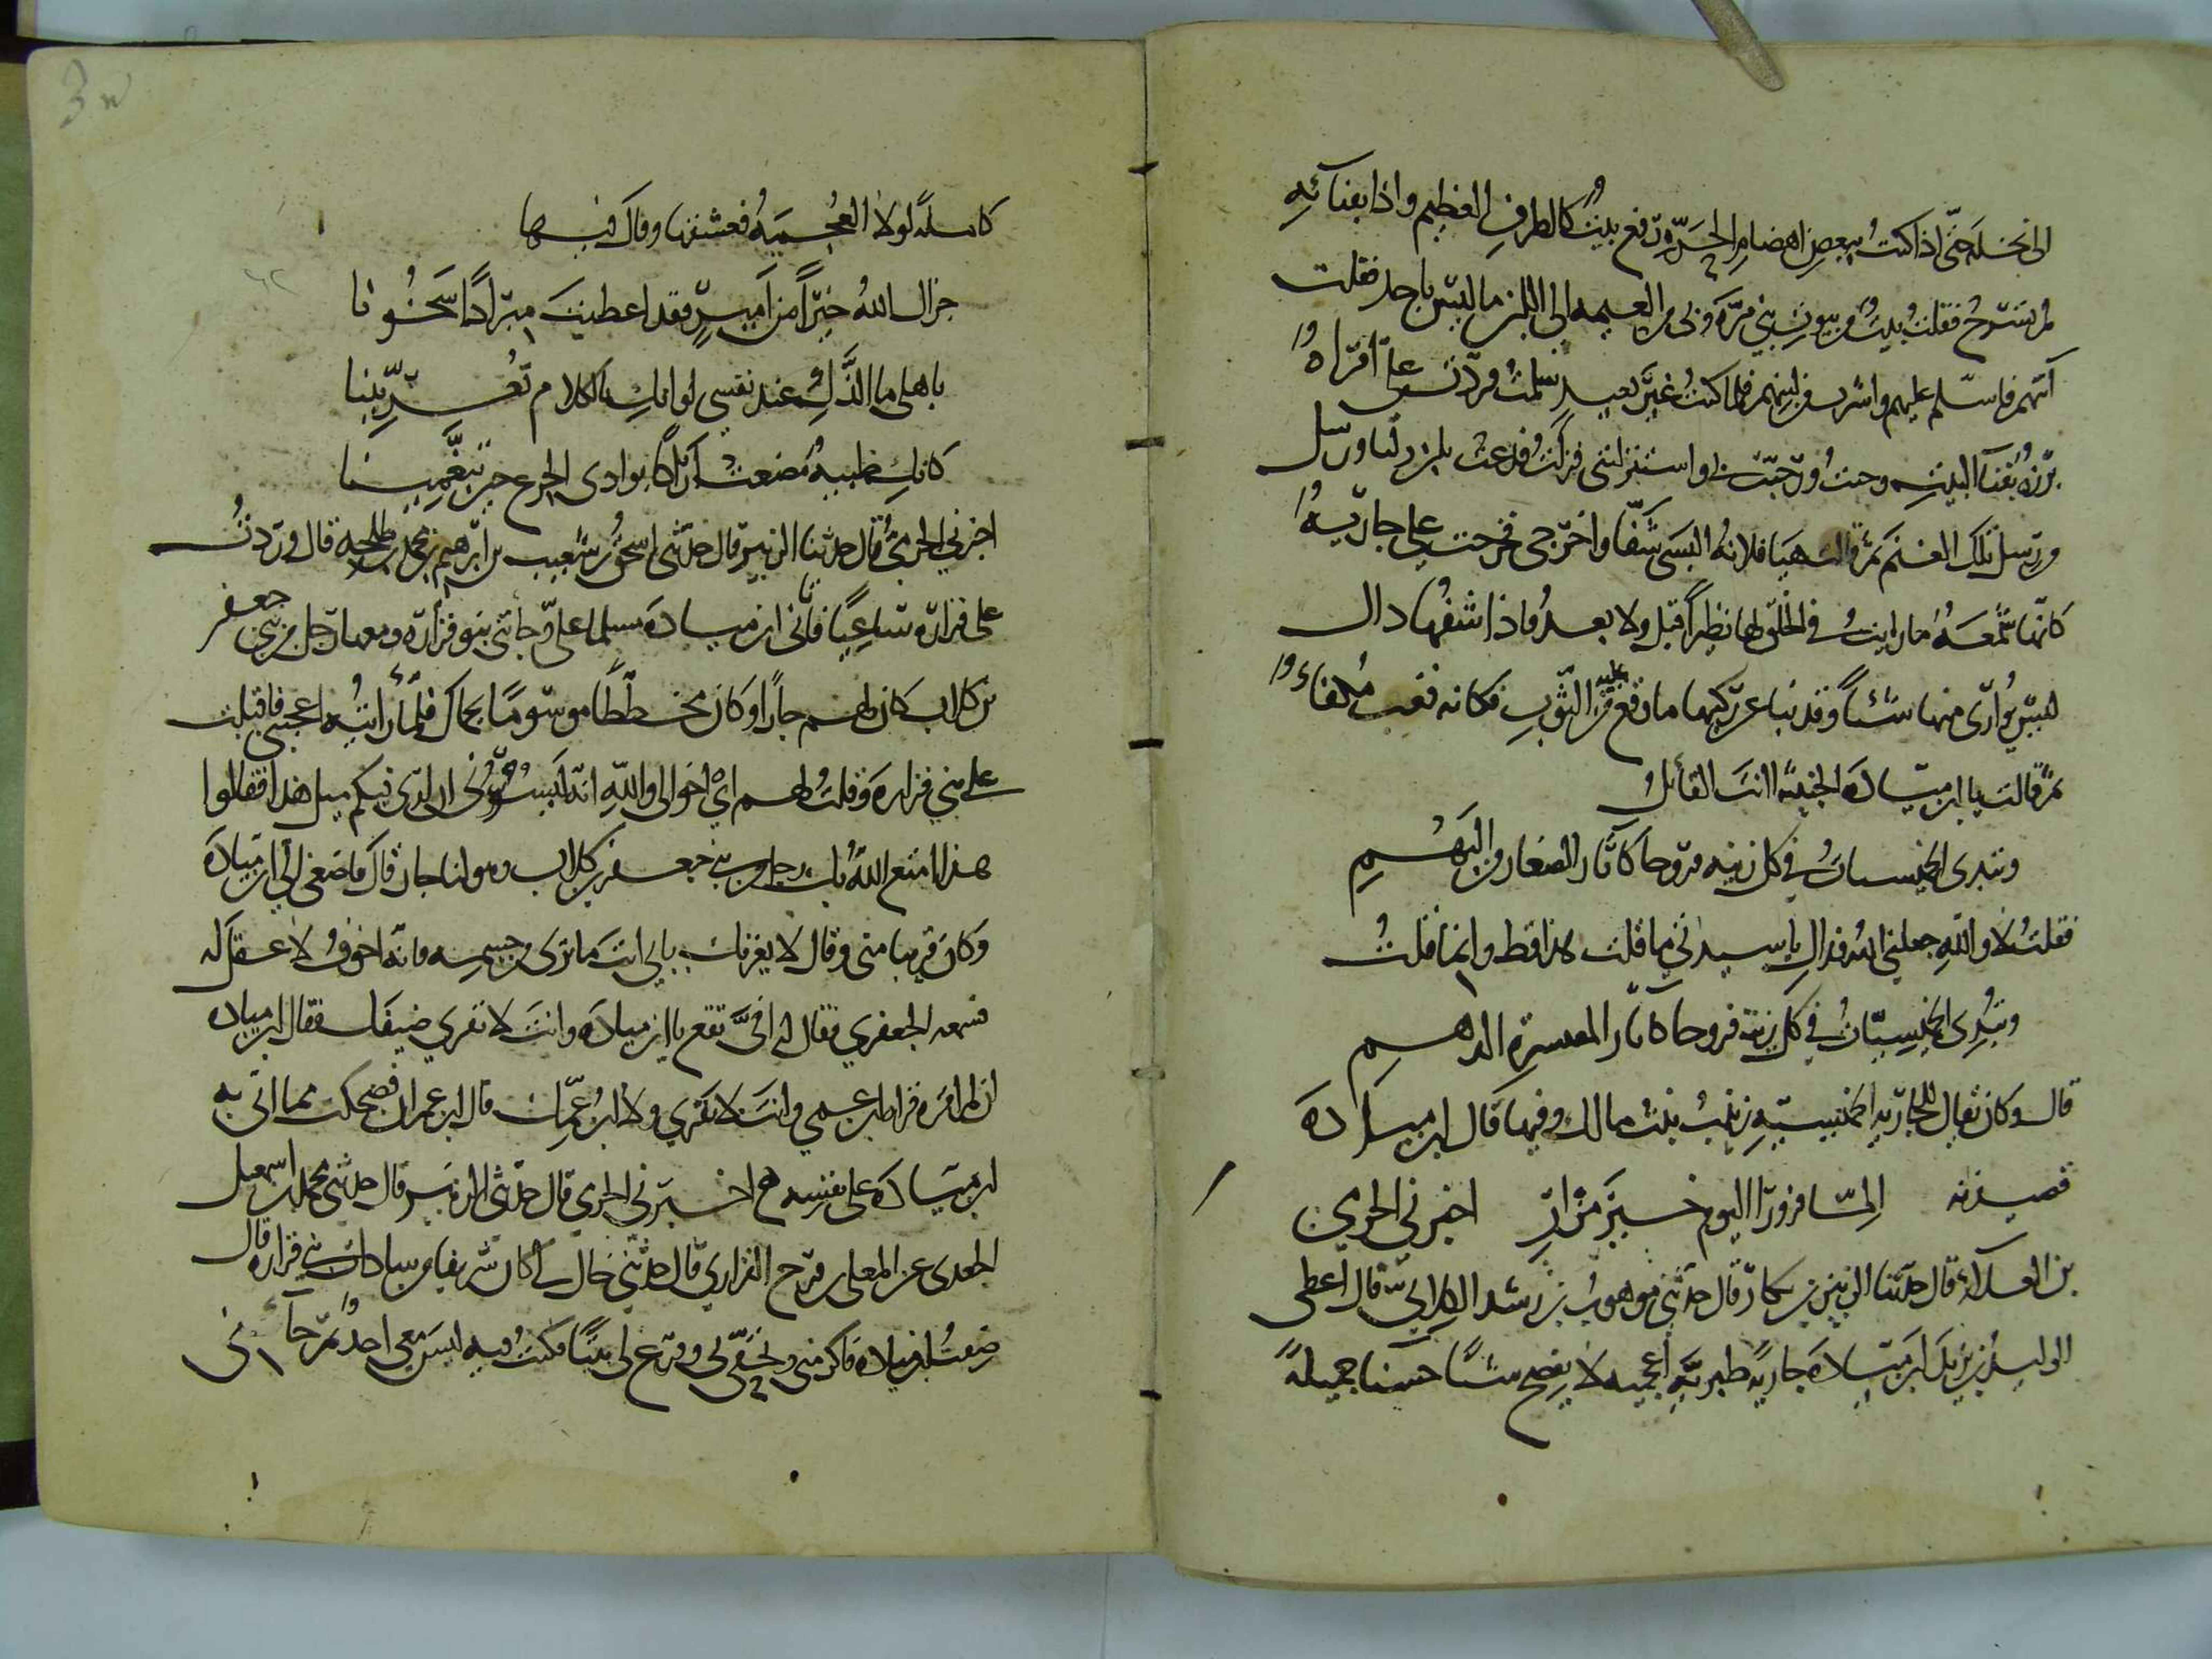 الى نخله حتى اذا كنت ببعض اهضام الحرة رفع بيت كالطراف العظيم واذا بفنائه
لم تسرح فقلت بيت من بيوت بني مرة وبي من العيمة الى اللبن ما ليس باحد فقلت
آتيهم فاسلم عليهم واشرب من لبنهم فلما كنت غير بعيد سلمت فردت علي امراة
برزة بفنا البيت وحيت ورحبت بي واستنزلتني فنزلت فدعت بلبن ورسل
ورسل تلك الغنم ثم قالت هيا فلانة البسي شفا واخرجي فخرجت علي جارية
كانها شمعة ما رايت في الخلق لها نظيرا قبل ولا بعد فاذا شفها ذاك
ليس يواري منها شيئا وقد نبا عن ركبها ما وقع عليه من الثوب فكانه قعب مكفا
ثم قالت يا ابن ميادة الخبيثة اانت القائل
وتبدي الحميسيات في كل زينة فروجا كآثار الصغار من البهم
فقلت لا والله جعلني الله فداك يا سيدتي ما قلت هذا قط وانما قلت
وتبدي الحميسيات في كل زينة فروجا كآثار المقيسرة الدهم
قال وكان يقال للجارية الحميسية زينب بنت مالك وفيها قال ابن ميادة
قصيدته الما فزورا اليوم خير مزار اخبرني الحرمي
بن العلاء قال حدثنا الزبير بن بكار قال حدثني موهوب بن رشيد الكلابي قال اعطى
الوليد بن يزيد ابن ميادة جارية طبرية اعجمية لا تفصح شيئا حسنا جميلة
كاملة لولا العجمة فعشقها وقال فيها
جزاك الله خيرا من امير فقد اعطيت مبرادا سخونا
باهلي ما الذك عند نفسي لو انك بالكلام تعربينا
كانك ظبية مضغت اراكا بوادي الجزع حين تبغمينا
اخبرني الحرمي قال حدثنا الزبير قال حدثني اسحق بن شعيب بن ابرهيم بن محمد بن طلحة قال وردت
على فزارة ساعيا فاتاني ابن ميادة مسلما علي وجاتني بنو فزارة ومعها رجل من بني جعفر
بن كلاب كان لهم جارا وكان مخططا موسوما بجمال فلما رايته اعجبني فاقبلت
على بني فزارة وقلت لهم اي اخوالي والله انه ليسرني ان ارى فيكم مثل هذا فقالوا
هذا امتع الله بك رجل من بني جعفر بن كلاب وهو لنا جار قال فاصغى الي ابن ميادة
وكان قريبا مني وقال لا يغرنك بابي انت ما ترى من جسمه فانه اجوف لا عقل له
فسمعه الجعفري فقال له افي تقع يا ابن ميادة وانت لا تقري ضيفك فقال ابن ميادة
ان لم اقره قراه ابن عمي وانت لا تقري ولا ابن عمك قال ابن عمران فضحكت مما اتى به
ابن ميادة على نفسه اخبرني الحرمي قال حدثنا الزبير قال حدثني محمد بن اسمعيل
الجعدي عن المعلى بن نوح الفزاري قال حدثني خال لي كان شريفا من سادات بني فزارة قال
ضفت ابن ميادة فاكرمني وتحفى لي وفرغ لي بيتا فكنت فيه ليس معي احد ثم جاءني